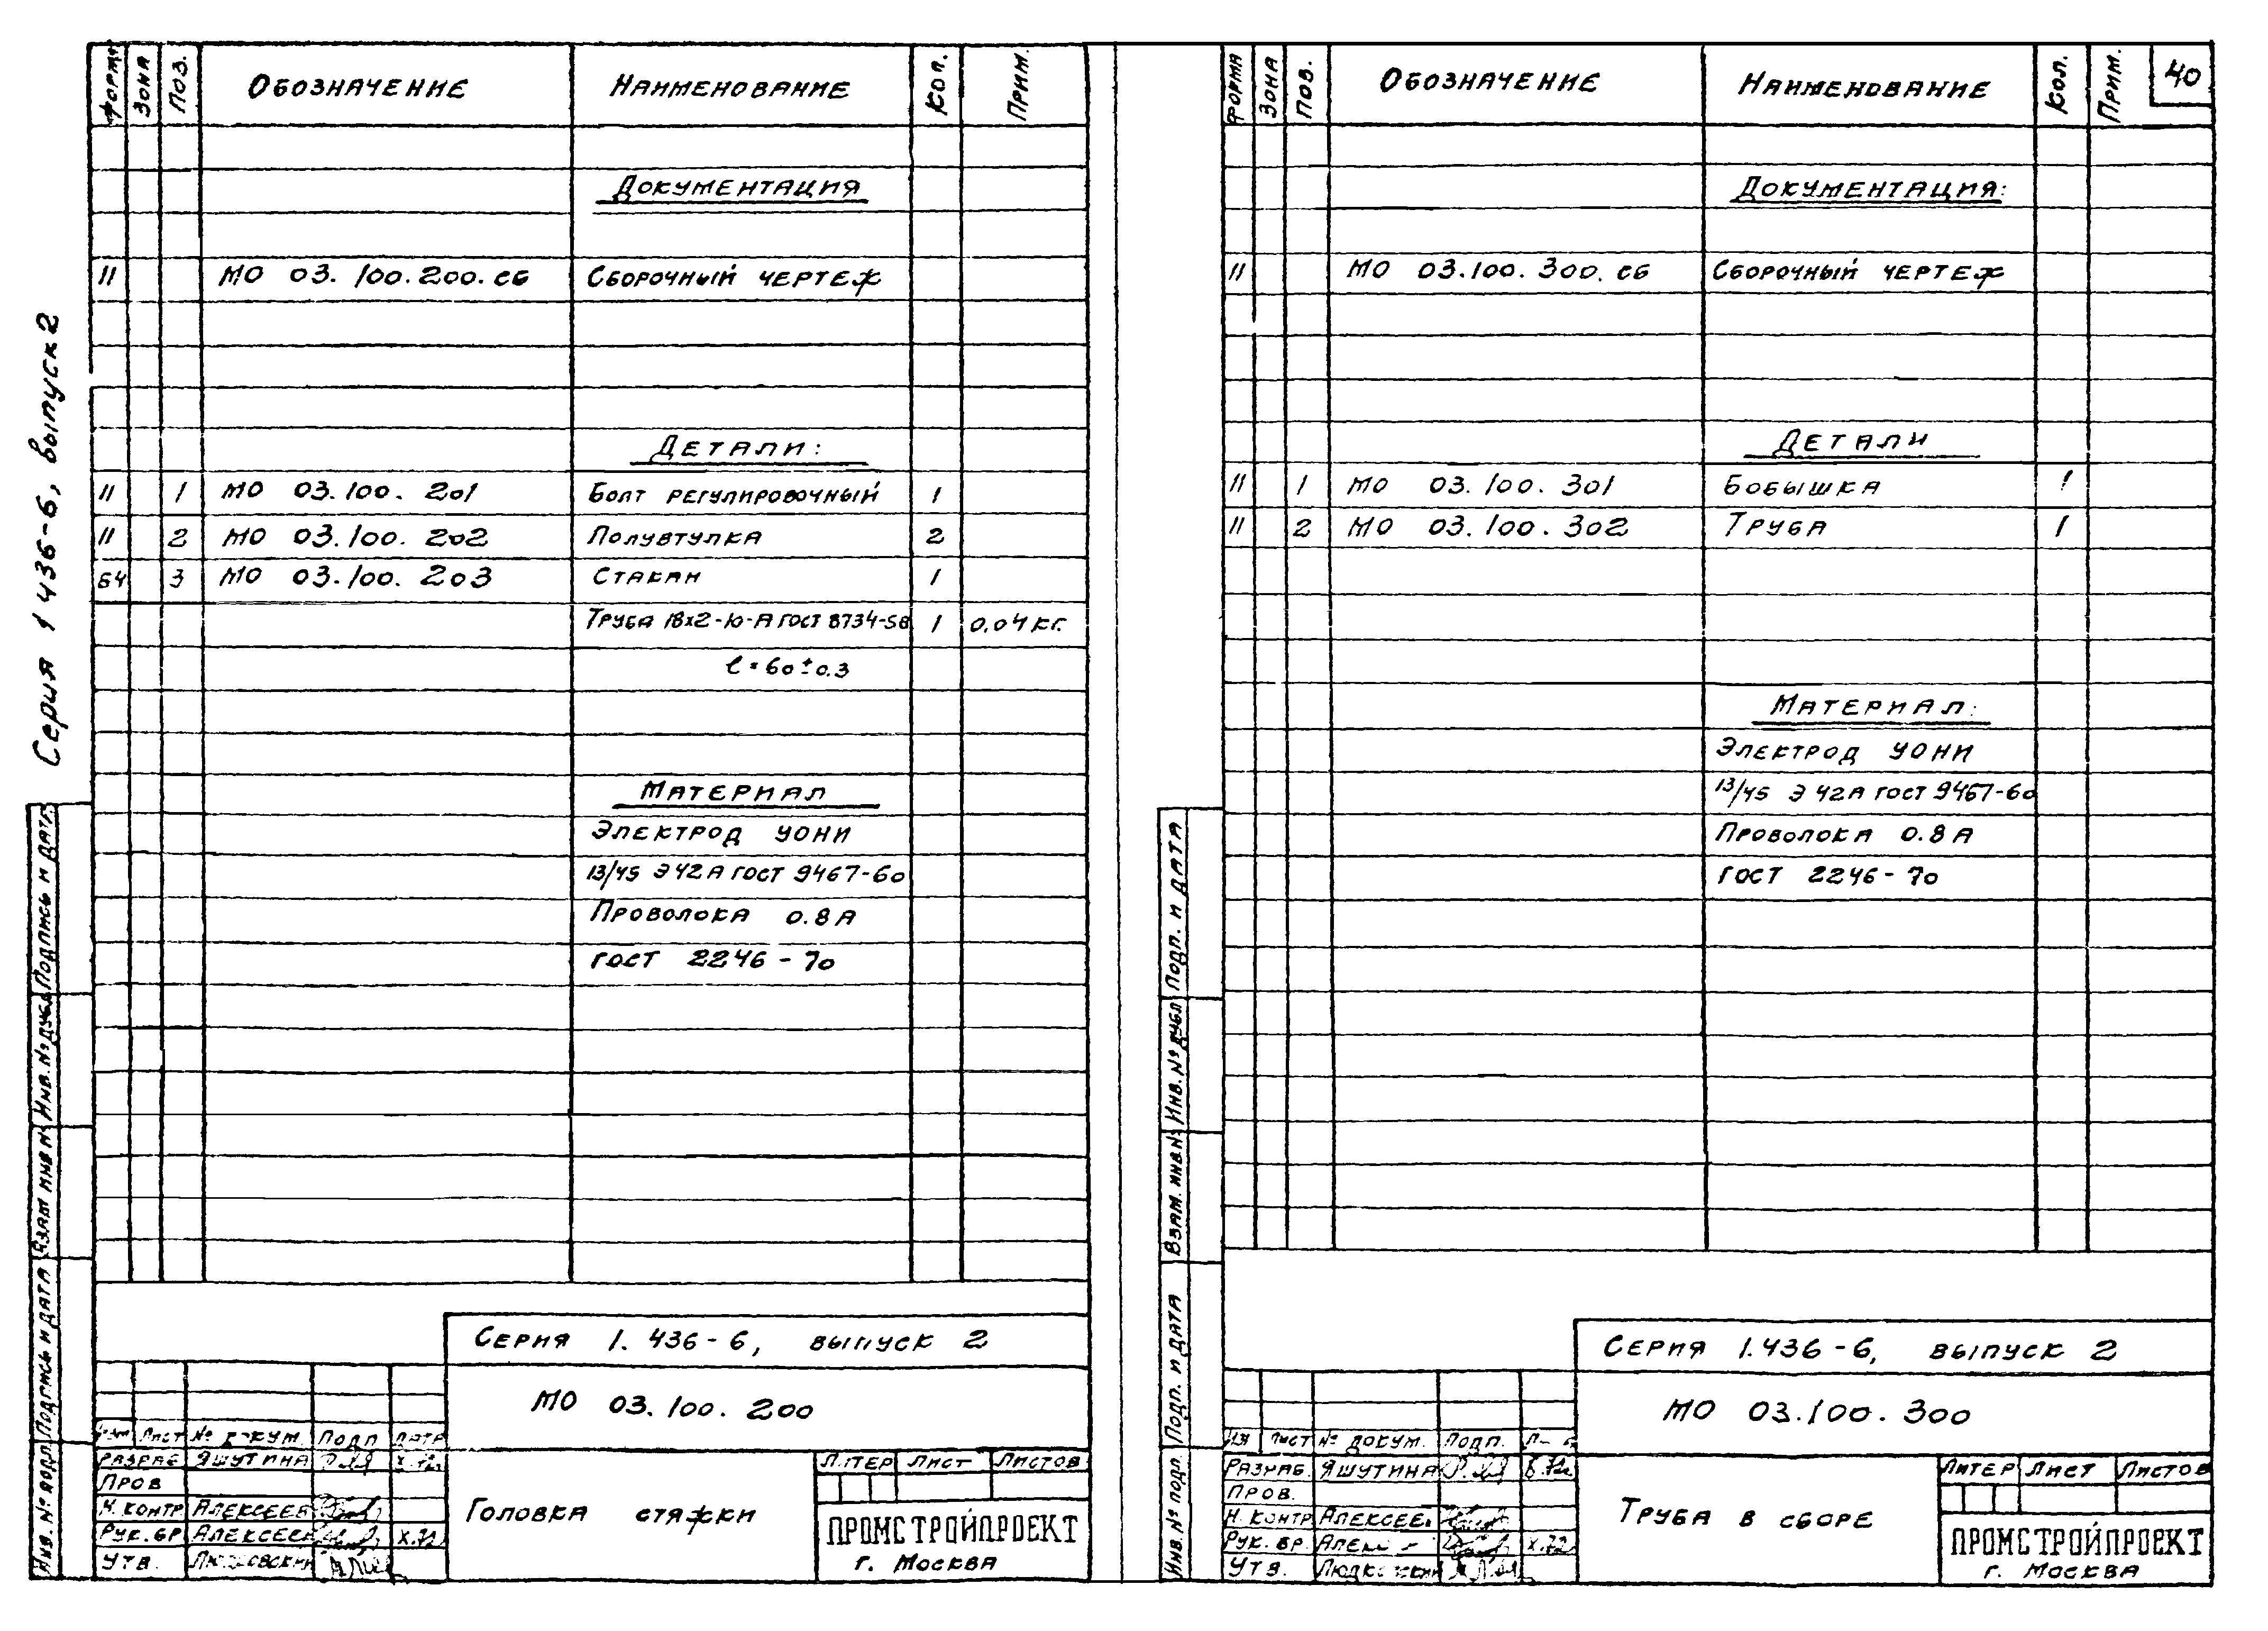 Серия 1 436-6, выпуск 2
ФОРМ ЗОНА ПОЗ. ОБОЗНАЧЕНИЕ НАИМЕНОВАНИЕ КОЛ. ПРИМ.
ДОКУМЕНТАЦИЯ
11 МО 03.100.200.СБ СБОРОЧНЫЙ ЧЕРТЕЖ
ДЕТАЛИ:
11 1 МО 03.100.201 БОЛТ РЕГУЛИРОВОЧНЫЙ 1
11 2 МО 03.100.202 ПОЛУВТУЛКА 2
Б4 3 МО 03.100.203 СТАКАН 1
ТРУБА 18х2-10-А ГОСТ 8734-58 1 0,04 КГ.
ℓ=60±0.3
МАТЕРИАЛ
ЭЛЕКТРОД УОНИ
13/45 Э42А ГОСТ 9467-60
ПРОВОЛОКА 0.8А
ГОСТ 2246-70
СЕРИЯ 1.436-6, ВЫПУСК 2
МО 03.100.200
ЛИСТ № ДОКУМ. ПОДП ДАТА
РАЗРАБ ЯШУТИНА X.72г
ПРОВ
Н.КОНТР АЛЕКСЕЕВ
РУК.БР АЛЕКСЕЕВ X.72
УТВ.
ГОЛОВКА СТЯЖКИ
ЛИТЕР ЛИСТ ЛИСТОВ
ПРОМСТРОЙПРОЕКТ
г. МОСКВА
ИНВ. № ПОДЛ ПОДПИСЬ И ДАТА ВЗАМ ИНВ № ИНВ. № ДУБЛ ПОДПИСЬ И ДАТА
40
ФОРМА ЗОНА ПОЗ. ОБОЗНАЧЕНИЕ НАИМЕНОВАНИЕ КОЛ. ПРИМ.
ДОКУМЕНТАЦИЯ:
11 МО 03.100.300.СБ СБОРОЧНЫЙ ЧЕРТЕЖ
ДЕТАЛИ
11 1 МО 03.100.301 БОБЫШКА 1
11 2 МО 03.100.302 ТРУБА 1
МАТЕРИАЛ:
ЭЛЕКТРОД УОНИ
13/45 Э42А ГОСТ 9467-60
ПРОВОЛОКА 0.8А
ГОСТ 2246-70
СЕРИЯ 1.436-6, ВЫПУСК 2
МО 03.100.300
ИЗМ ЛИСТ № ДОКУМ. ПОДП.
РАЗРАБ. ЯШУТИНА
ПРОВ.
Н.КОНТР АЛЕКСЕЕВ
РУК. БР. X.72
УТВ.
ТРУБА В СБОРЕ
ЛИТЕР ЛИСТ ЛИСТОВ
ПРОМСТРОЙПРОЕКТ
г. МОСКВА
ИНВ. № ПОДЛ. ПОДП. И ДАТА ВЗАМ. ИНВ № ИНВ. № ДУБЛ ПОДП. И ДАТА